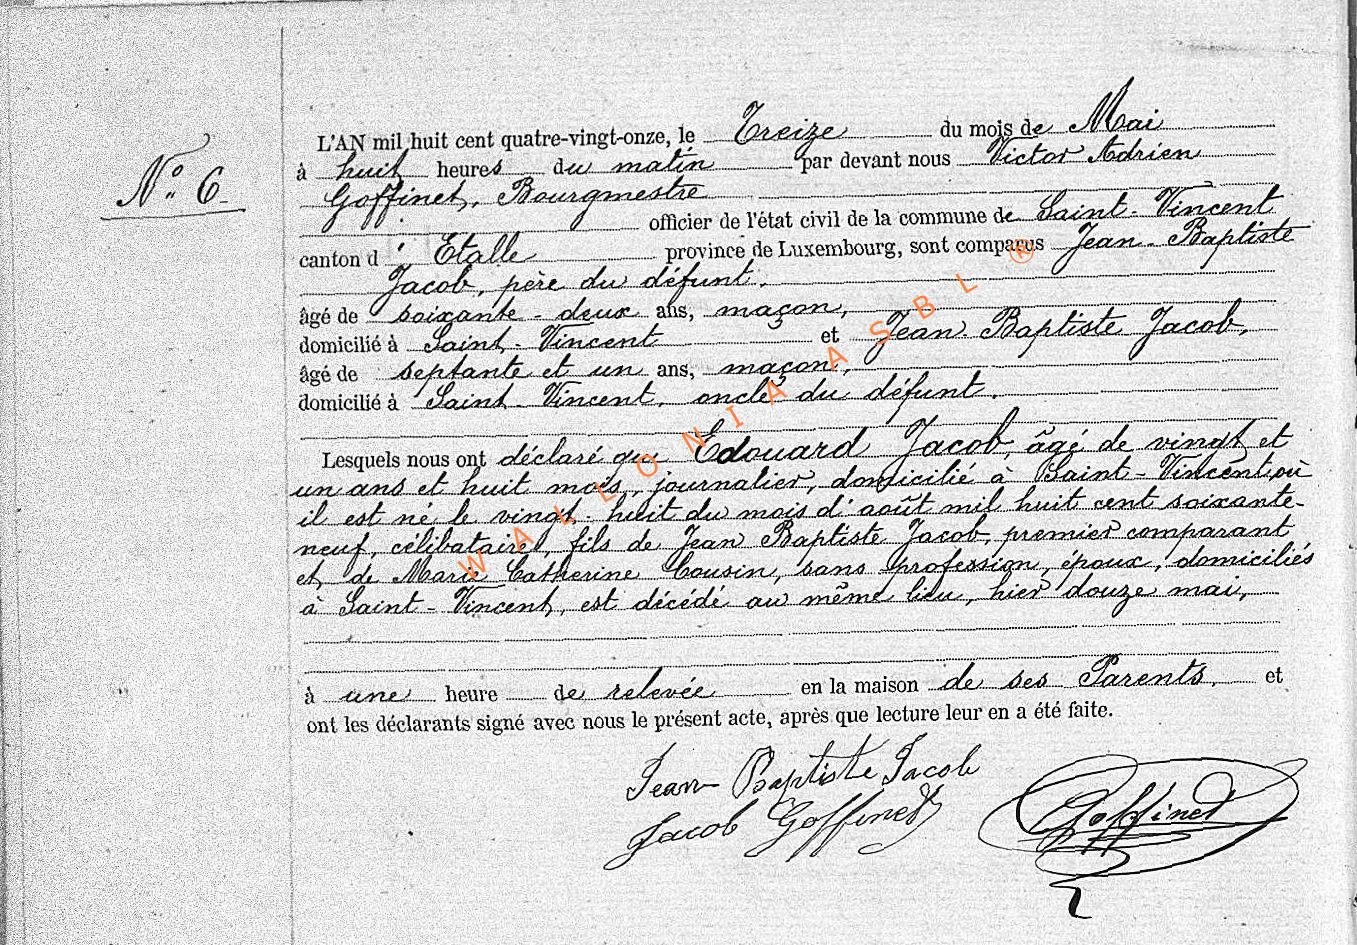 L'AN mil huit cent quatre-vingt-onze, le Treize du mois de Mai
N° 6
à huit heures du matin par devant nous Victor Adrien
Goffinet, Bourgmestre
officier de l'état civil de la commune de Saint-Vincent
canton d' Etalle province de Luxembourg, sont comparus Jean-Baptiste
Jacob, père du défunt.
âgé de soixante-deux ans, maçon,
domicilié à Saint-Vincent et Jean-Baptiste Jacob,
âgé de septante et un ans, maçon,
domicilié à Saint-Vincent, oncle du défunt.
Lesquels nous ont déclaré que Edouard Jacob, âgé de vingt et
un ans et huit mois, journalier, domicilié à Saint-Vincent où
il est né le vingt-huit du mois d'août mil huit cent soixante-
neuf, célibataire, fils de Jean Baptiste Jacob, premier comparant
et de Marie Catherine Cousin, sans profession, époux, domiciliés
à Saint-Vincent, est décédé au même lieu, hier douze mai,
à une heure de relevée en la maison de ses Parents. et
ont les déclarants signé avec nous le présent acte, après que lecture leur en a été faite.
Jean Baptiste Jacob
Jacob Goffinet
Goffinet
WALLONIA ASBL ®